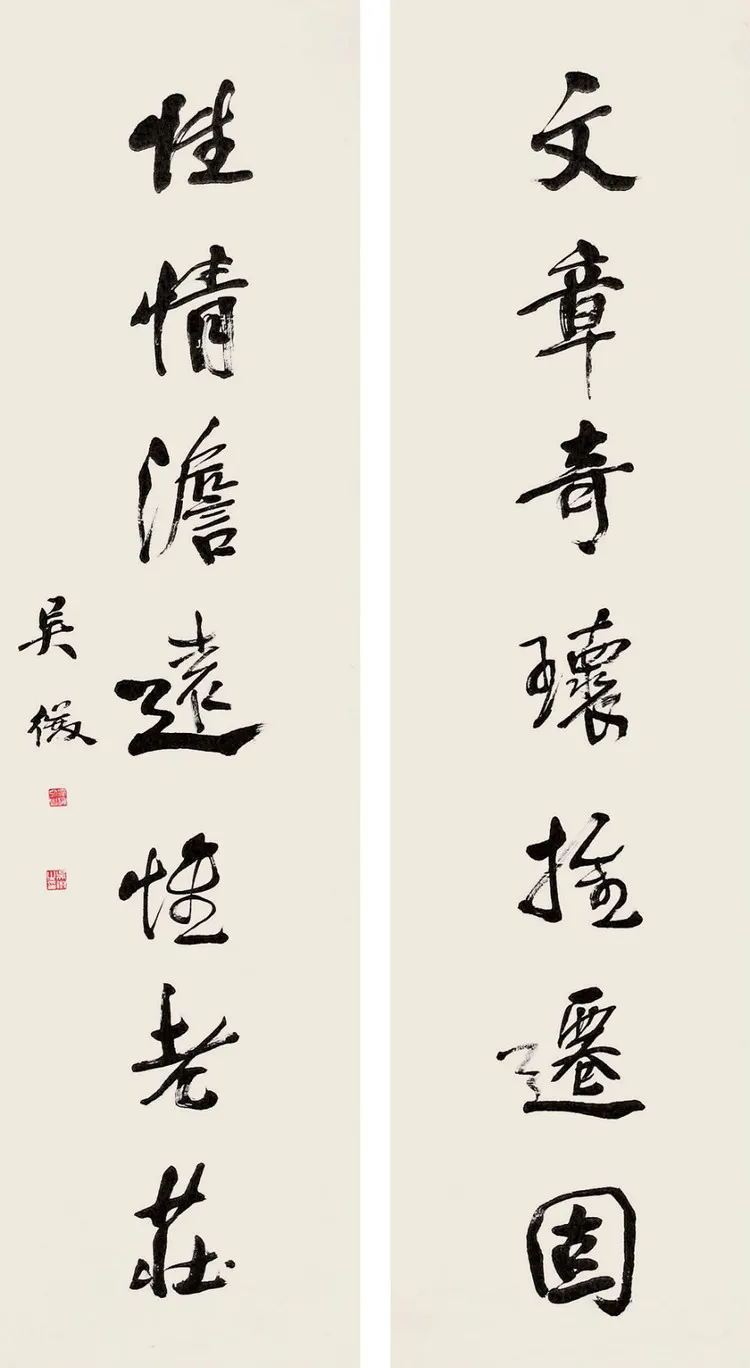 文章奇瓌推遷固
性情澹遠惟老莊
吳徵